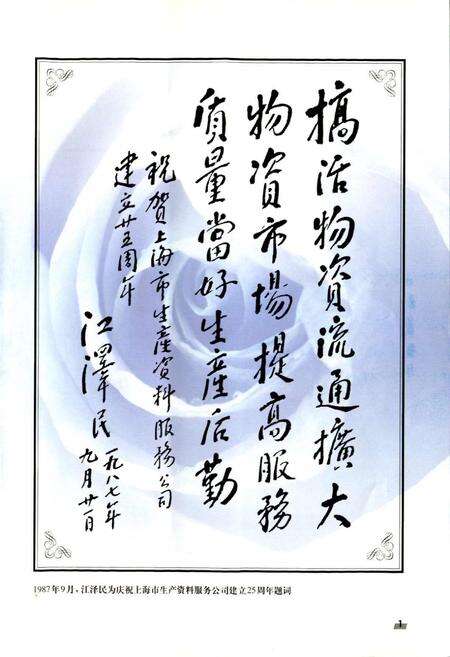 搞活物資流通擴大
物資市場提高服務
质量當好生產后勤
祝贺上海市生產资料服務公司
建立廿五周年
江澤民
一九八七年
九月廿一日
1987年9月，江泽民为庆祝上海市生产资料服务公司建立25周年题词
1